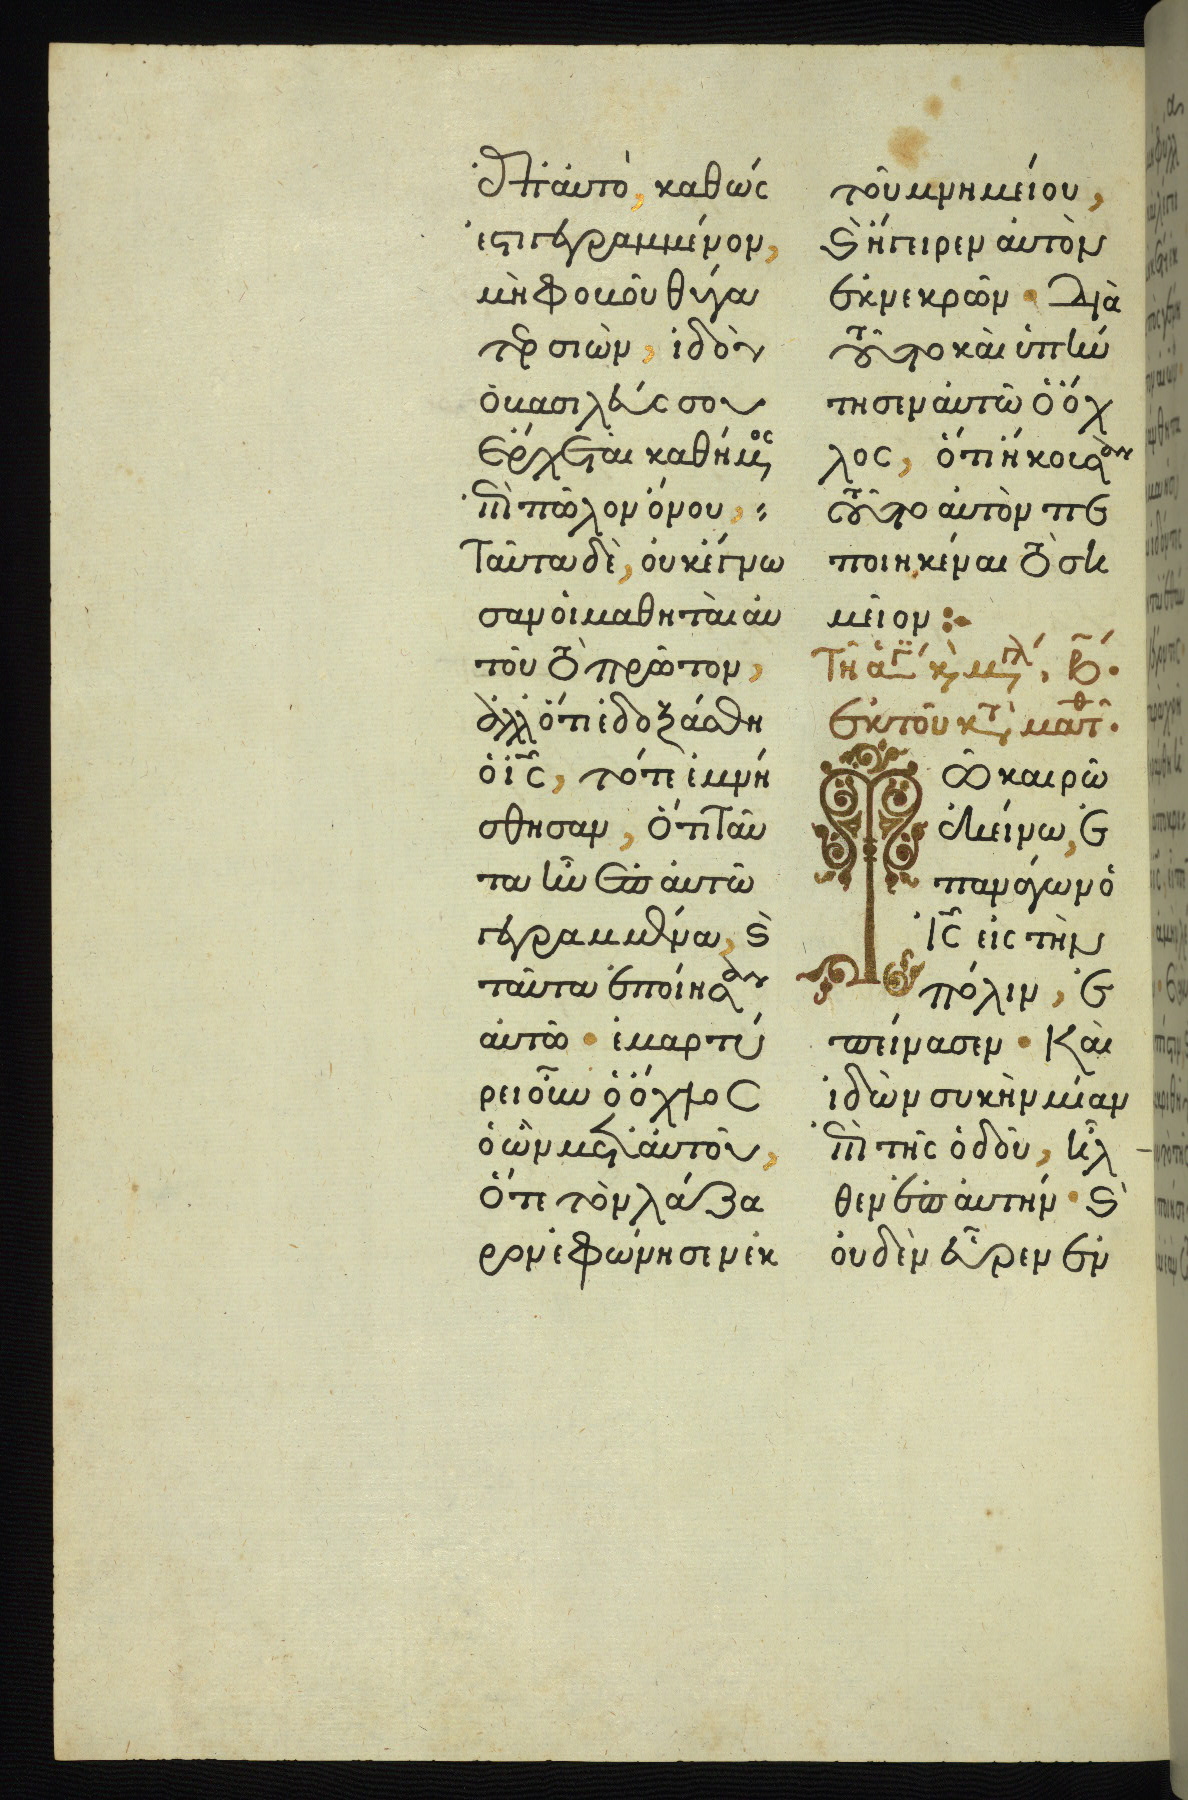 ἐπ' αὐτὸ, καθώς
ἐστι γεγραμμένον,
μὴ φοβοῦ θύγα
τερ σιὼν, ἰδοὺ
ὁ βασιλεύς σου
ἔρχεται καθήμενος
ἐπὶ πῶλον ὄνου,
Ταῦτα δὲ, οὐκ ἔγνω
σαν οἱ μαθηταὶ αὐ
τοῦ τὸ πρῶτον,
ἀλλ' ὅτι ἐδοξάσθη
ὁ ἰς, τότε ἐμνή
σθησαν, ὅτι ταῦ
τα ἦν ἐπ' αὐτῶ
γεγραμμένα, καὶ
ταῦτα ἐποίησαν
αὐτῶ· ἐμαρτύ
ρει οὖν ὁ ὄχλος
ὁ ὢν μετ' αὐτοῦ,
ὅτε τὸν λάζα
ρον ἐφώνησεν ἐκ
τοῦ μνημείου,
καὶ ἤγειρεν αὐτὸν
ἐκ νεκρῶν· Διὰ
τοῦτο καὶ ὑπήν
τησεν αὐτῶ ὁ ὄχ
λος, ὅτι ἤκουσαν
τοῦτο αὐτὸν πε
ποιηκέναι τὸ ση
μεῖον:
Τῆ ἁγ κ μγλ β·
ἐκ τοῦ κτ ματθ·
Τῶ καιρῶ
ἐκείνω, ἐ
πανάγων ὁ
ἰς εἰς τὴν
πόλιν, ἐ
πείνασεν· Καὶ
ἰδὼν συκῆν μίαν
ἐπὶ τῆς ὁδοῦ, ἦλ
θεν ἐπ' αὐτήν· καὶ
οὐδὲν εὗρεν ἐν